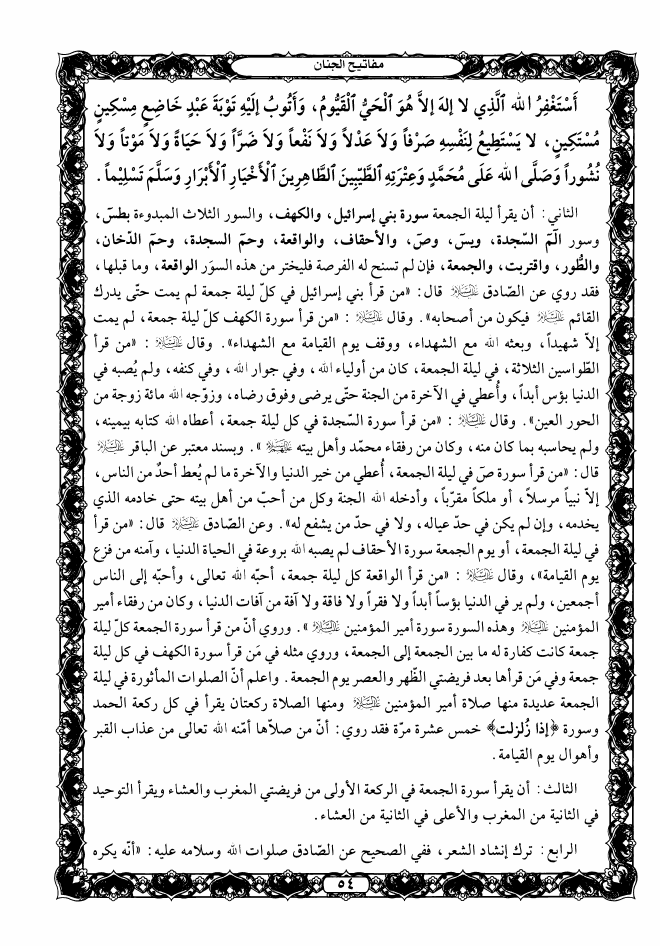 مفاتيح الجنان
أَسْتَغْفِرُ الله ٱلَّذِي لا إلهَ إلاَّ هُوَ ٱلْحَيُّ ٱلْقَيُّومُ، وَأَتُوبُ إلَيْهِ تَوْبَةَ عَبْدٍ خَاضِعٍ مِسْكِينٍ
مُسْتَكِينٍ، لا يَسْتَطِيعُ لِنَفْسِهِ صَرْفاً وَلاَ عَدْلاً وَلاَ نَفْعاً وَلاَ ضَرّاً وَلاَ حَيَاةً وَلاَ مَوْتاً وَلاَ
نُشُوراً وَصَلَّى الله عَلَى مُحَمَّدٍ وَعِتْرَتِهِ ٱلطَّيِّبِينَ ٱلطَّاهِرِينَ ٱلْأَخْيَارِ ٱلْأَبْرَارِ وَسَلَّمَ تَسْلِيماً.
الثاني: أن يقرأ ليلة الجمعة سورة بني إسرائيل، والكهف، والسور الثلاث المبدوءة بطس،
وسور الٓمٓ السّجدة، ويسٓ، وصٓ، والأحقاف، والواقعة، وحمٓ السجدة، وحمٓ الدّخان،
والطُّور، واقتربت، والجمعة، فإن لم تسنح له الفرصة فليختر من هذه السوَر الواقعة، وما قبلها،
فقد روي عن الصّادق عليه السلام قال: «من قرأ بني إسرائيل في كلّ ليلة جمعة لم يمت حتّى يدرك
القائم عليه السلام فيكون من أصحابه». وقال عليه السلام: «من قرأ سورة الكهف كلّ ليلة جمعة، لم يمت
إلاّ شهيداً، وبعثه الله مع الشهداء، ووقف يوم القيامة مع الشهداء». وقال عليه السلام: «من قرأ
الطّواسين الثلاثة، في ليلة الجمعة، كان من أولياء الله، وفي جوار الله، وفي كنفه، ولم يُصبه في
الدنيا بؤس أبداً، وأُعطي في الآخرة من الجنة حتّى يرضى وفوق رضاه، وزوّجه الله مائة زوجة من
الحور العين». وقال عليه السلام: «من قرأ سورة السّجدة في كل ليلة جمعة، أعطاه الله كتابه بيمينه،
ولم يحاسبه بما كان منه، وكان من رفقاء محمّد وأهل بيته عليهم السلام». وبسند معتبر عن الباقر عليه السلام
قال: «من قرأ سورة صٓ في ليلة الجمعة، أُعطي من خير الدنيا والآخرة ما لم يُعط أحدٌ من الناس،
إلاّ نبياً مرسلاً، أو ملكاً مقرّباً، وأدخله الله الجنة وكل من أحبّ من أهل بيته حتى خادمه الذي
يخدمه، وإن لم يكن في حدّ عياله، ولا في حدّ من يشفع له». وعن الصّادق عليه السلام قال: «من قرأ
في ليلة الجمعة، أو يوم الجمعة سورة الأحقاف لم يصبه الله بروعة في الحياة الدنيا، وآمنه من فزع
يوم القيامة»، وقال عليه السلام: «من قرأ الواقعة كل ليلة جمعة، أحبّه الله تعالى، وأحبّه إلى الناس
أجمعين، ولم ير في الدنيا بؤساً أبداً ولا فقراً ولا فاقة ولا آفة من آفات الدنيا، وكان من رفقاء أمير
المؤمنين عليه السلام وهذه السورة سورة أمير المؤمنين عليه السلام». وروي أنّ من قرأ سورة الجمعة كلّ ليلة
جمعة كانت كفارة له ما بين الجمعة إلى الجمعة، وروي مثله في مَن قرأ سورة الكهف في كل ليلة
جمعة وفي مَن قرأها بعد فريضتي الظّهر والعصر يوم الجمعة. واعلم أنّ الصلوات المأثورة في ليلة
الجمعة عديدة منها صلاة أمير المؤمنين عليه السلام ومنها الصلاة ركعتان يقرأ في كل ركعة الحمد
وسورة ﴿إذا زُلزلت﴾ خمس عشرة مرّة فقد روي: أنّ من صلاّها أمّنه الله تعالى من عذاب القبر
وأهوال يوم القيامة.
الثالث: أن يقرأ سورة الجمعة في الركعة الأولى من فريضتي المغرب والعشاء ويقرأ التوحيد
في الثانية من المغرب والأعلى في الثانية من العشاء.
الرابع: ترك إنشاد الشعر، ففي الصحيح عن الصّادق صلوات الله وسلامه عليه: «أنّه يكره
٥٤